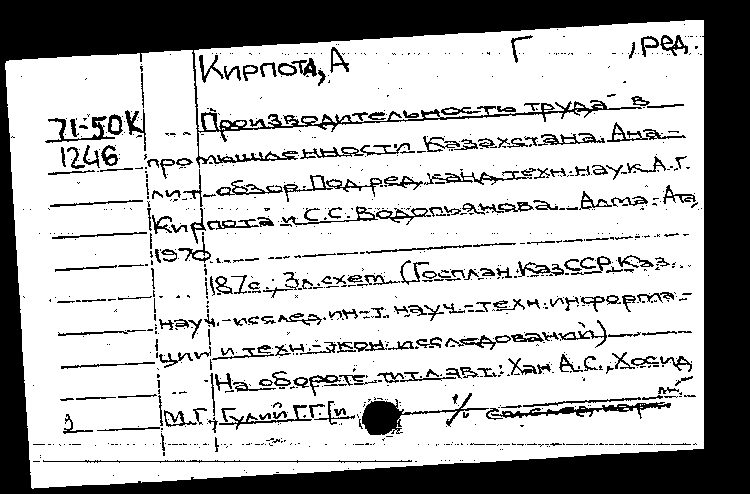 Кирпота, А Г , ред.
71-50К Производительность труда в
1246 промышленности Казахстана. Ана-
лит. обзор. Под ред. канд. техн. наук А.Г.
Кирпота и С.С. Водопьянова. Алма-Ата,
1970.
187с.; 3л.схет. (Госплан КазССР. Каз.
науч.-исслед. ин-т. науч.-техн. информа-
ции и техн.-экон. исследований)
На обороте тит.л.авт.: Хан А.С., Хосид
М.Г., Гулий Г.Г. [и